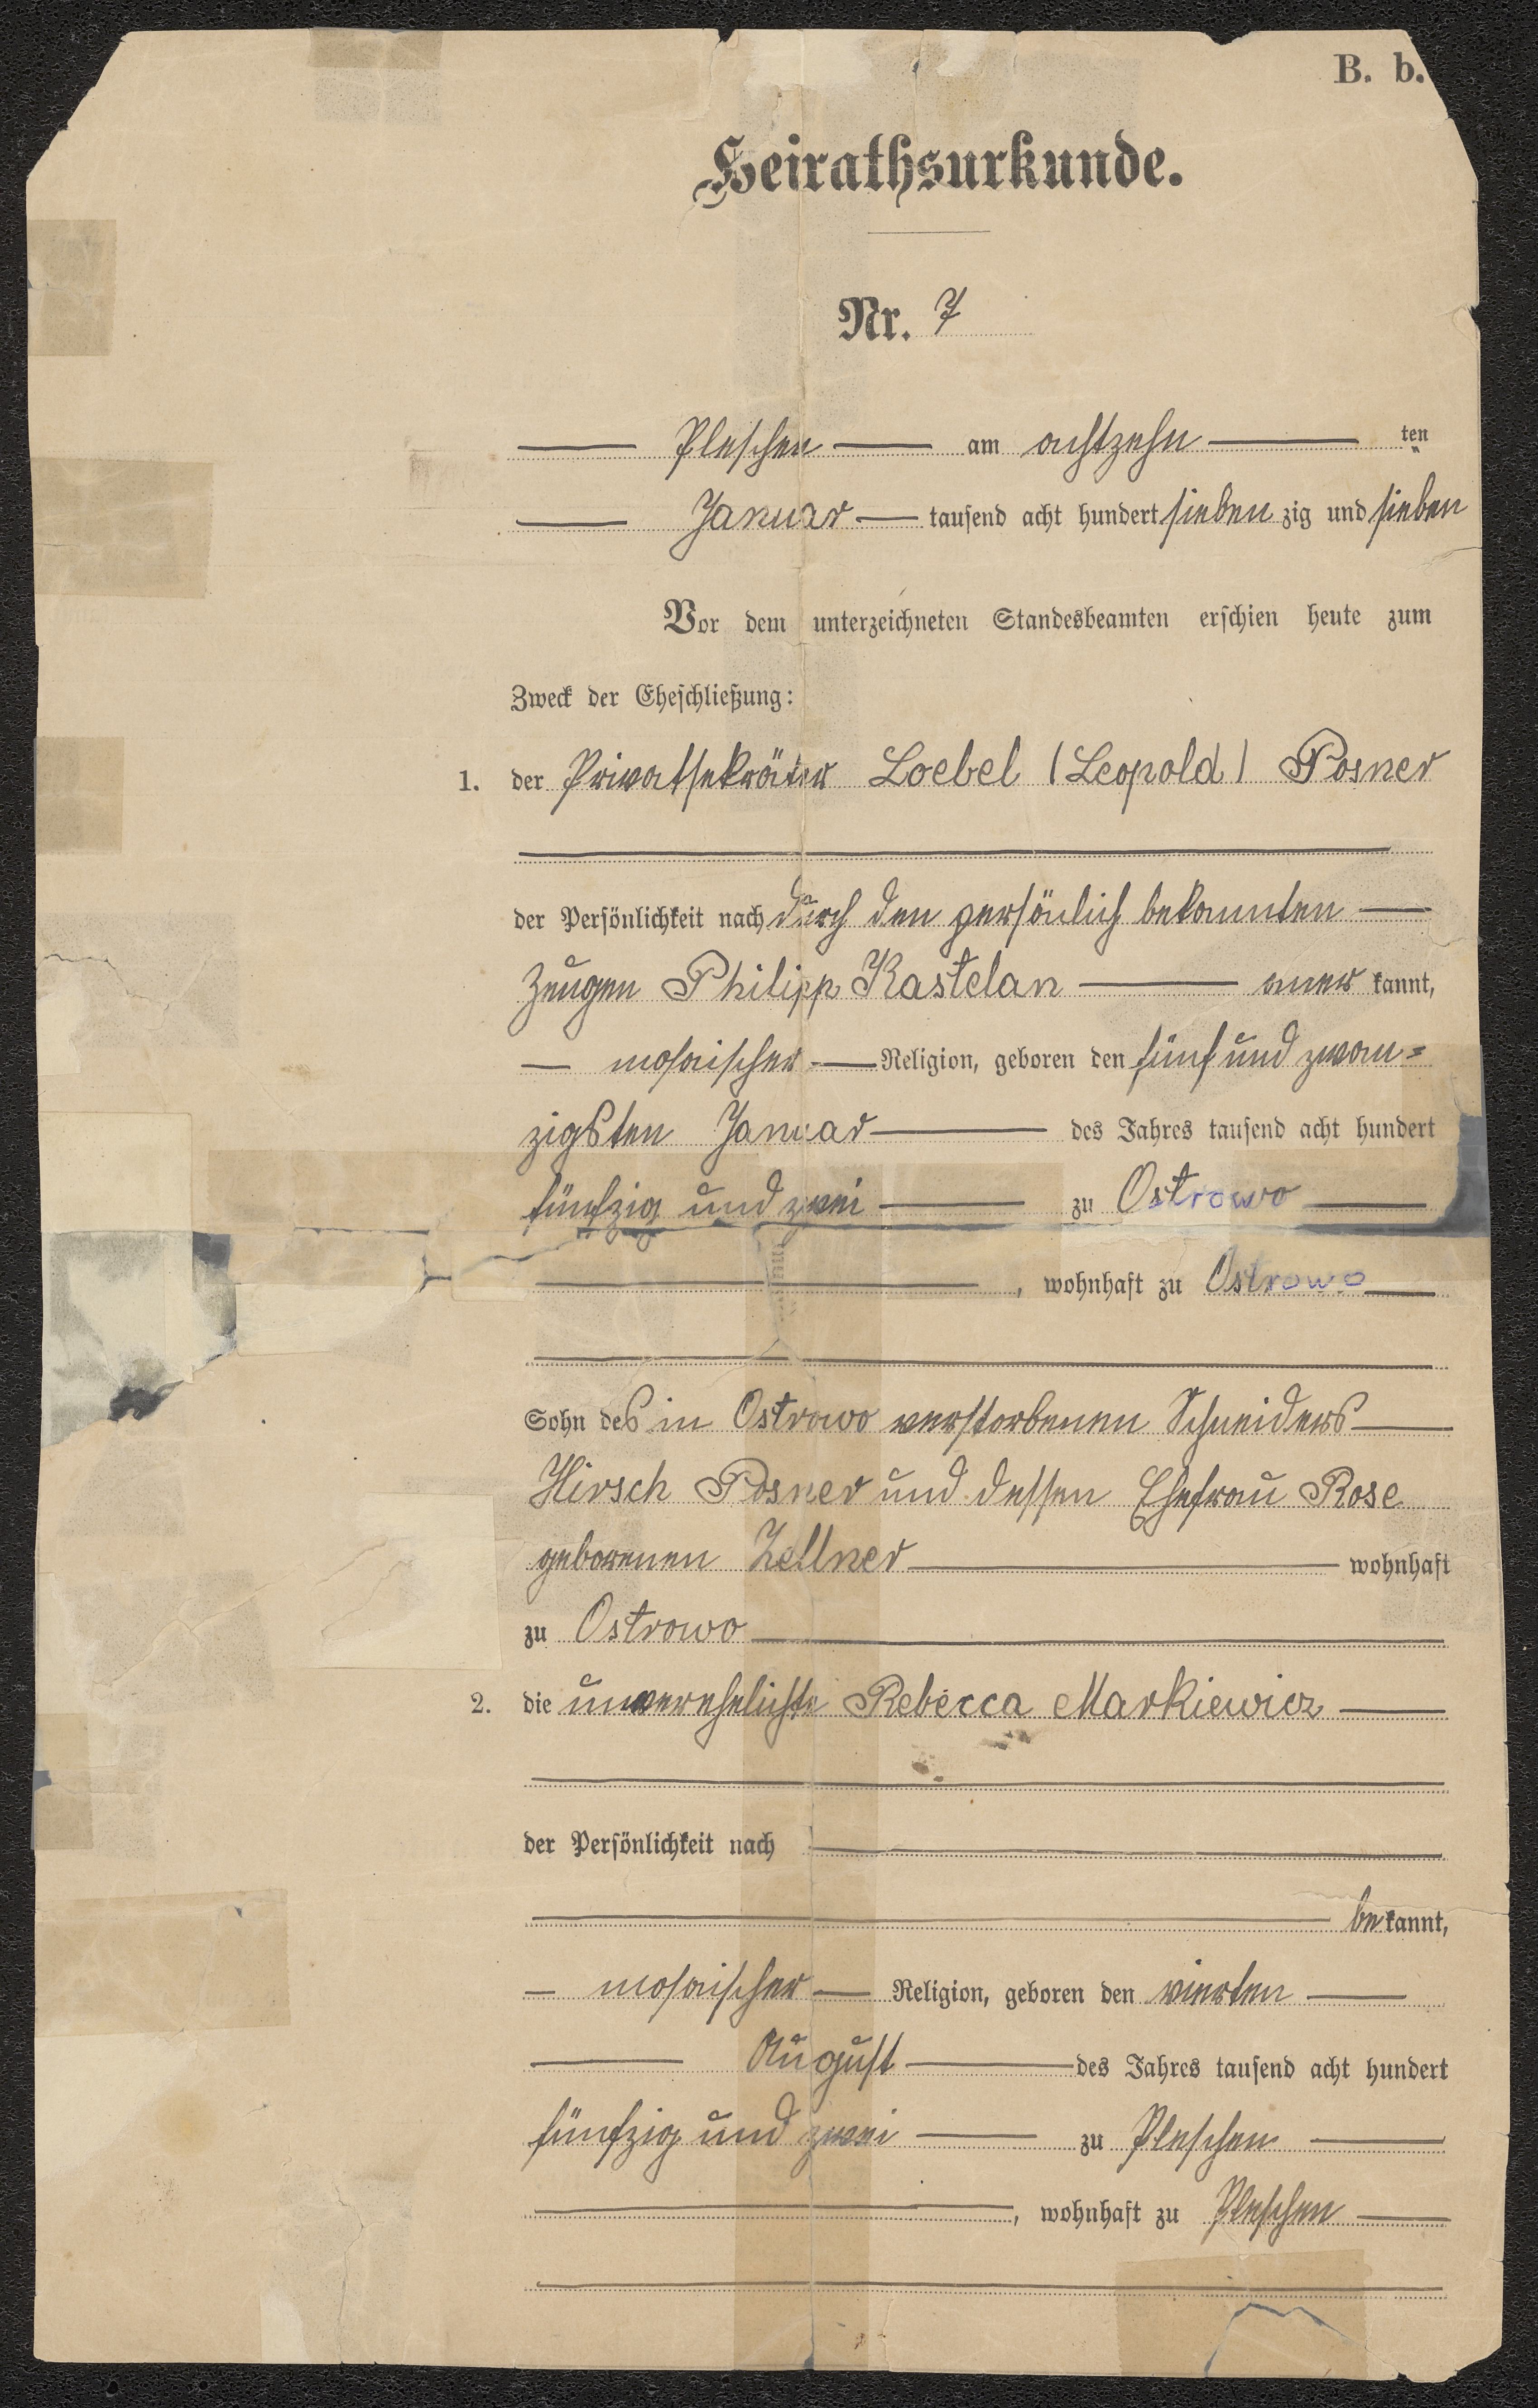 B. b.
Heirathsurkunde.
Nr. 7
Pleschen am achtzehn ten
Januar tausend acht hundert sieben zig und sieben
Vor dem unterzeichneten Standesbeamten erschien heute zum
Zweck der Eheschließung:
1. der Privatsekretär Loebel (Leopold) Posner
der Persönlichkeit nach durch den persönlich bekannten
Zeugen Philipp Kastelan aner kannt,
mosaischer Religion, geboren den fünf und zwan=
zigsten Januar des Jahres tausend acht hundert
fünfzig und zwei zu Ostrowo
, wohnhaft zu Ostrowo
Sohn des in Ostrowo verstorbenen Schneiders
Hirsch Posner und dessen Ehefrau Rose
geborenen Zellner wohnhaft
zu Ostrowo
2. die unverehelichte Rebecca Markiewicz
der Persönlichkeit nach
be kannt,
mosaischer Religion, geboren den vierten
August des Jahres tausend acht hundert
fünfzig und zwei zu Pleschen
, wohnhaft zu Pleschen